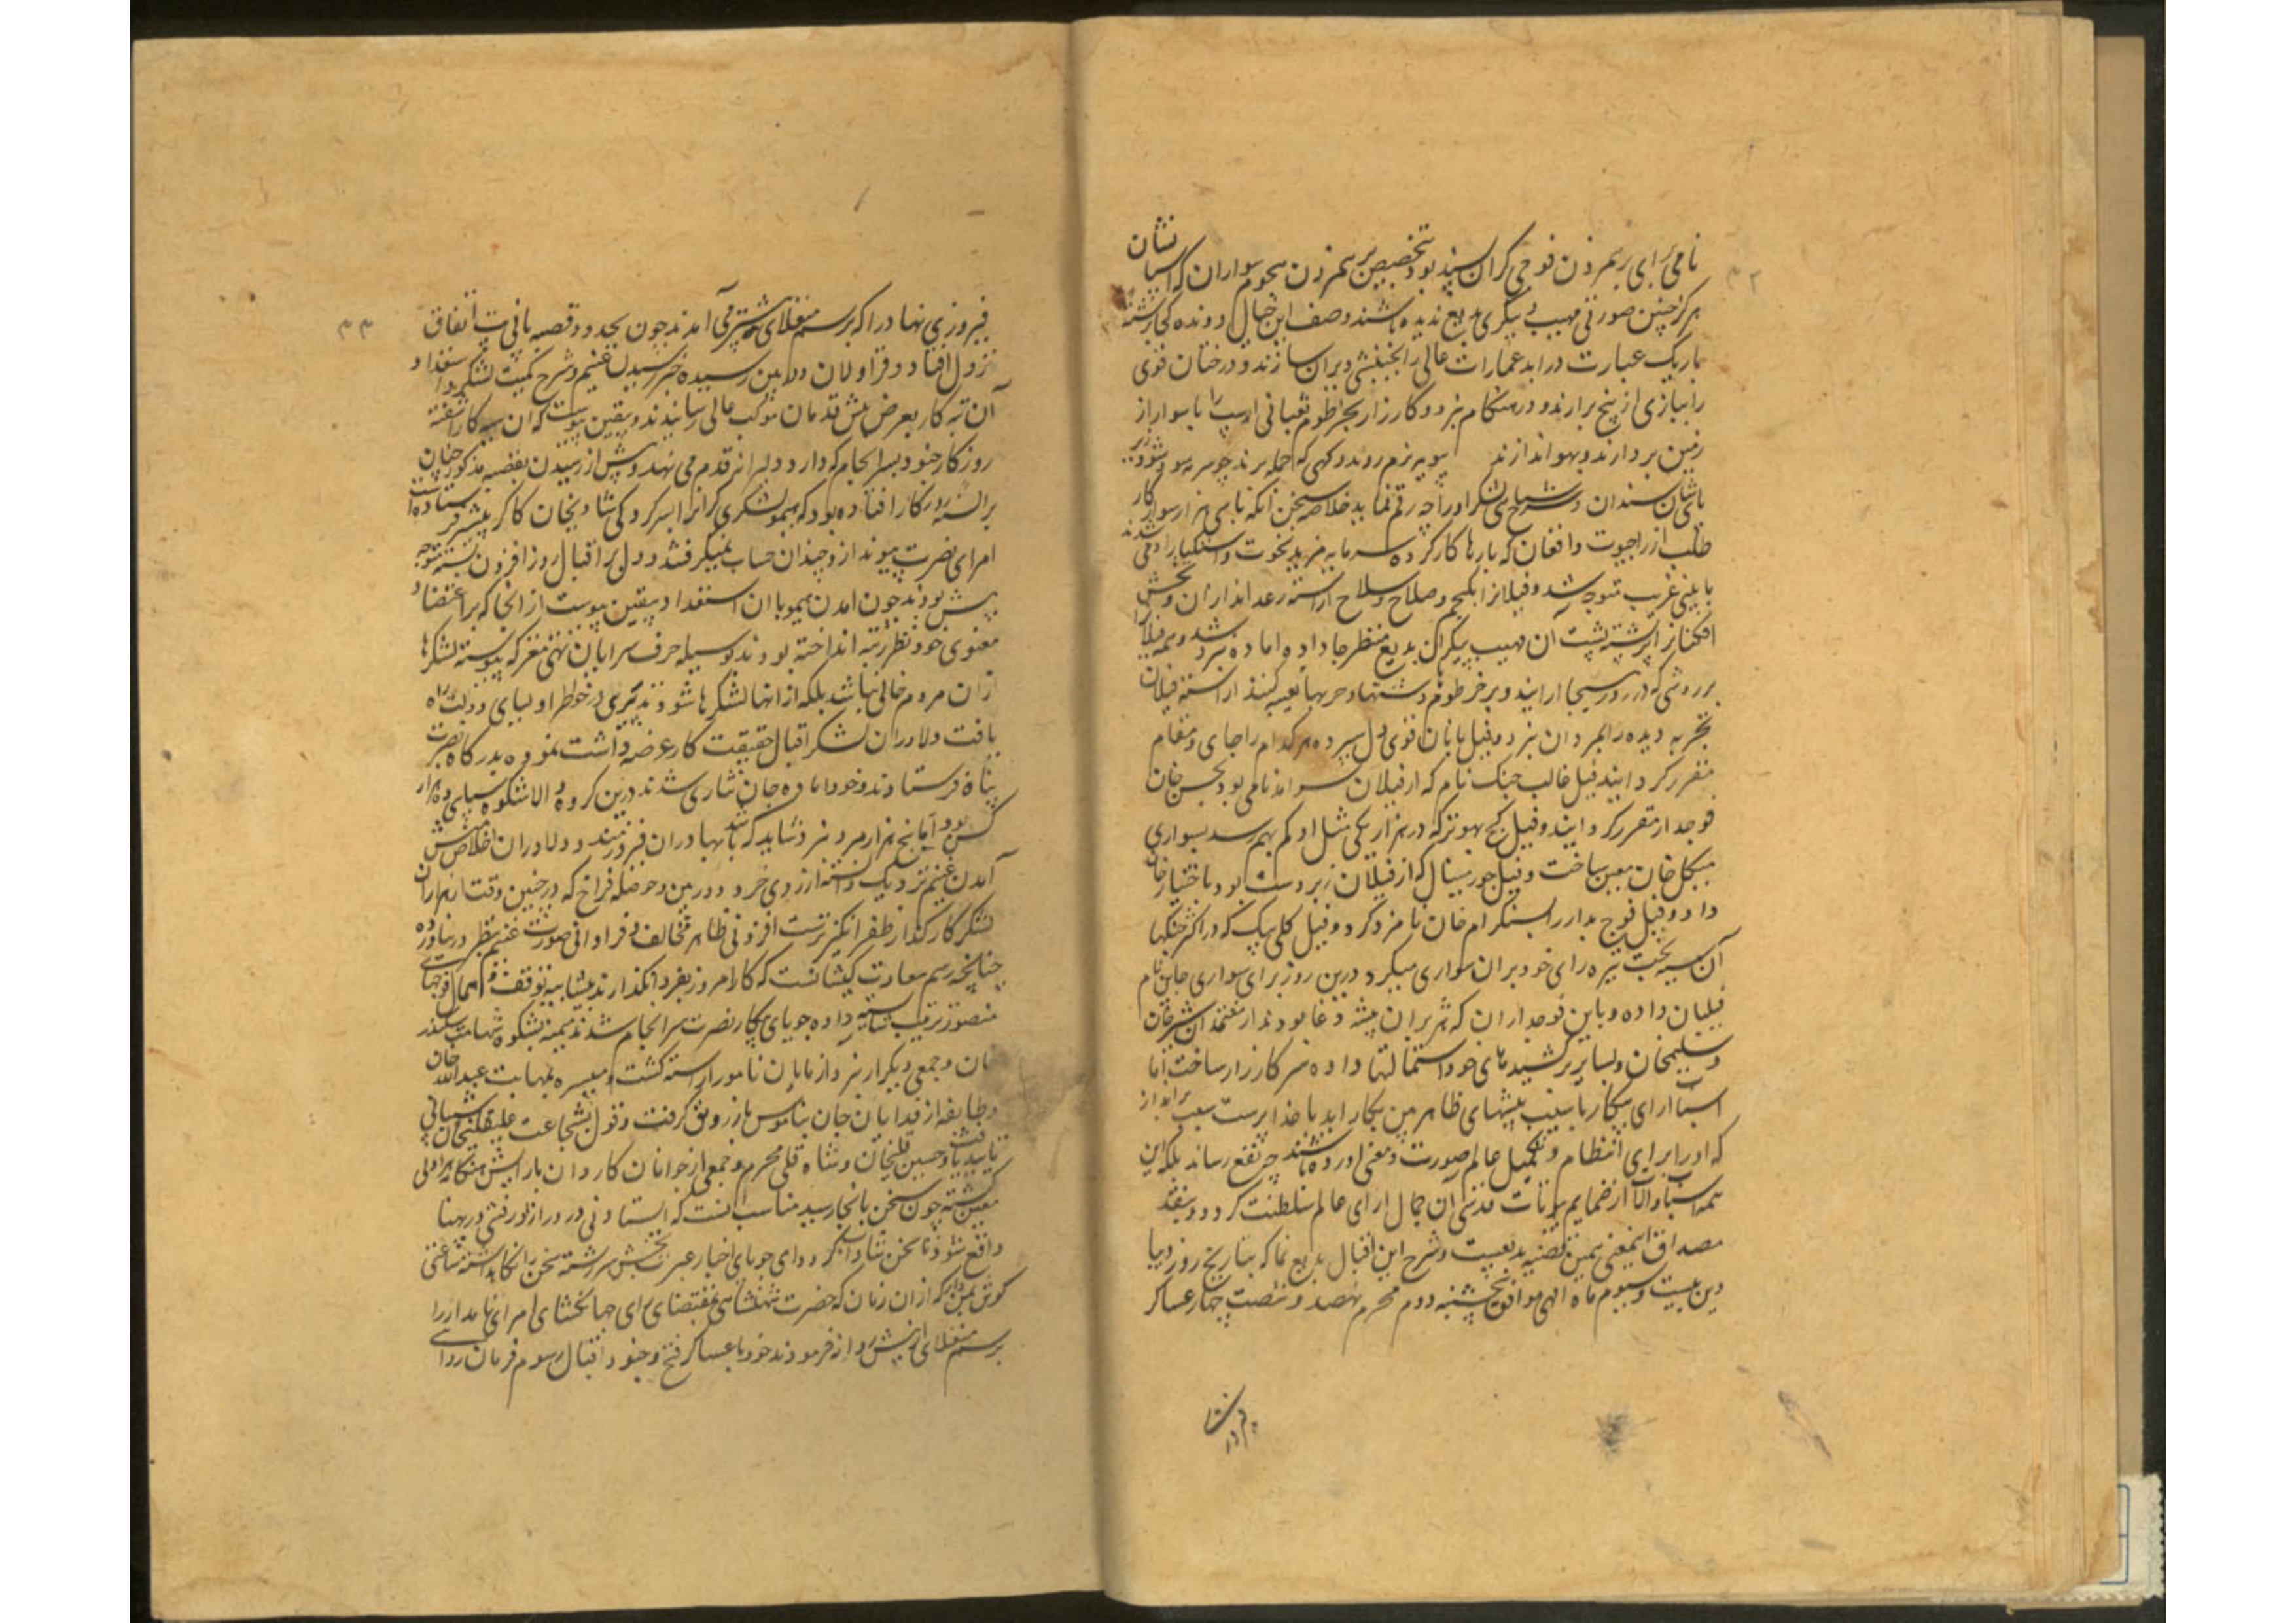 نشان
نامی برای برهم زدن فوجی گران بسند بود بتخصیص برهم زدن هجوم سواران که اسپان
هرگز چنین صورتی مهیب و پیکری بدیع ندیده باشند وصف این جبال دونده کجا برشته
باریک عبارت درآید عمارات عالی را بجنبشی ویران سازند و درختان قوی
را ببازی از بیخ برآرند و در هنگام نبرد و کارزار بخرطوم ثعبانی اسپ را با سوار از
زمین بردارند و بهوا اندازند بپویه نرم روند و گهی که حمله برند چو سرمه سود شود زیر
پایشان سندان و شرح سپاهی لشکر او را چه رقم نماید خلاصه سخن آنکه تا سی هزار سوار کار
طلب از راجپوت و افغان که بارها کارکرده سرمایه مزید نخوت و استکبار آدمی شدند
بآیینی غریب متوجه شد و فیلان را بلجم و صلاح و سلاح آراسته رعد اندازان و تخش
افکنان را بر پشته پشت آن مهیب پیکران بدیع منظر جا داده آماده نبرد شد و همه فیلان را
بروشی که در روز هیجا آرایند و بر خرطوم دشنها و حربها تعبیه کنند آراسته فیلان
تجربه دیده را بمردان نبرد و فیلبانان قوی دل سپرده هرکدام را جای و مقام
مقرر گردانید فیل غالب جنگ نام که از فیلان سرآمد نامی بود بحسن خان
فوجدار مقرر گردانید و فیل گج بهونر که در هزار یکی مثل او کم بهم رسد بسواری
میکل خان معین ساخت و فیل جوربنیال که از فیلان زبردست بود باختیار خان
داد و فیل فوج مدار را بسنگرام خان نامزد کرد و فیل کلی بیک که در اکثر جنگها
آن سیه بخت تیره رای خود بران سواری میکرد درین روز برای سواری جاپن نام
فیلبان داده و باین فوجداران که هژبران بیشه وغا بودند از معتمدان شیرخان
و سلیمخان و بسایر برکشیدهای خود استمالتها داده سرگرم کارزار ساخت اما
اسباب آرای پیکار یا سبب پیشهای ظاهربین بکار آید با خداپرست سبب برانداز
که او را برای انتظام و تکمیل عالم صورت و معنی آورده باشند چه نفع رساند بلکه این
همه اسباب والا از ضمایم برآت قدسی آن جمال آرای عالم سلطنت گردد و بیفتد
مصداق اینمعنی همین قضیه بدیعیست و شرح این اقبال بدیع نما که بتاریخ روز دیبا
دین بیست و سیوم ماه الهی موافق پنجشنبه دوم محرم نهصد و شصت چهار عساکر
فیروزی
۳۲
۳۳
فیروزی نهاد را که برسم منغلای پیشتر می آمدند چون بحدود قصبه پانی پت اتفاق
نزول افتاد و قراولان دوربین رسیده خبر رسیدن غنیم و شرح کمیت لشکر و استعداد
آن تبه کار بعرض پیش قدمان موکب عالی رسانیدند و بیقین پیوست که آن سیه کار آشفته
روزگار جنود بسرانجام که دارد دلیرانه قدم می نهد و پیش از رسیدن بقصبه مذکور چنان
بر السنه روزگار افتاده بود که هیمو لشکری گران را بسرکردگی شادیخان کاکر پیشتر فرستاده است
امرای نصرت پیوند ازو چندان حساب نمیگرفتند و دل بر اقبال روز افزون بسته متوجه
پیش بودند چون آمدن هیمو با آن استعداد بیقین پیوست از آنجا که بر اعتضاد
معنوی خود نظر نینداخته بودند بوسیله حرف سرایان تهی مغز که پیوسته لشکرها
ازان مردم خالی نباشد بلکه ازانها لشکرها شوند تیرگی بخواطر اولیای دولت راه
یافت دلاوران لشکر اقبال حقیقت کار عرضه داشت نموده بدرگاه نصرت
پناه فرستادند و خود آماده جان نثاری شدند درین گروه والا شکوه سپاهی ده هزار
کس بود اما پنج هزار مرد نبرد شاید که باشد بهادران فیروزمند و دلاوران اخلاص منش
آمدن غنیم نزدیک دانسته از روی خرد دوربین و حوصله فراخ که در چنین وقت هزاران
لشکر کارگذار ظفرانگیزتر است افزونی ظاهر مخالف و فراوانی صورت غنیم بنظر در نیاورده
چنانچه رسم سعادت کیشانست که کار امروز بفردا نگذارند بشایبه توقف و اهمال فوجهای
منصور ترتیب شایسته داده جویای پیکار نصرت سرانجام شدند میمنه بشکوه شهامت سکندر
خان و جمعی دیگر از نبردآزمایان نامور آراسته گشت و میسره بمهابت عبدالله خان
و طایفه از فدایان جان بناموس باز رونق گرفت و قول بشجاعت علیقلیخان شیبانی
تایید یافت و حسین قلیخان و شاه قلی محرم و جمعی از جوانان کاردان بآرایش هنگامه هراولی
معین گشته چون سخن باینجا رسید مناسب آنست که ایستادنی در دراز و رفتنی در پهنا
واقع شود تا سخن شاداب گردد ای جویای اخبار عبرت بخش سررشته سخن را نگاهداشته ساعتی
گوش بمن دار که از آن زمان که حضرت شهنشاهی بمقتضای رای جهانگشای امرای نامدار را
برسم منغلای از پیش روانه فرمودند خود با عساکر فتح و جنود اقبال رسوم فرمان روائی